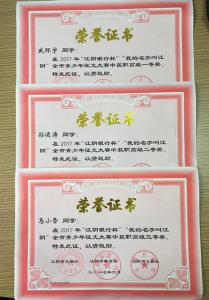 荣誉证书
同学：
在2017年“江阴银行杯”“我的名字叫江
阴”全市青少年征文大赛中获职高组一等奖，
特发此证，以资鼓励。
荣誉证书
孙逸涛 同学：
在2017年“江阴银行杯”“我的名字叫江
阴”全市青少年征文大赛中获职高组二等奖，
特发此证，以资鼓励。
荣誉证书
马小雪 同学：
在2017年“江阴银行杯”“我的名字叫江
阴”全市青少年征文大赛中获职高组三等奖，
特发此证，以资鼓励。
江阴市文明办 江阴市教育局 江阴日报社